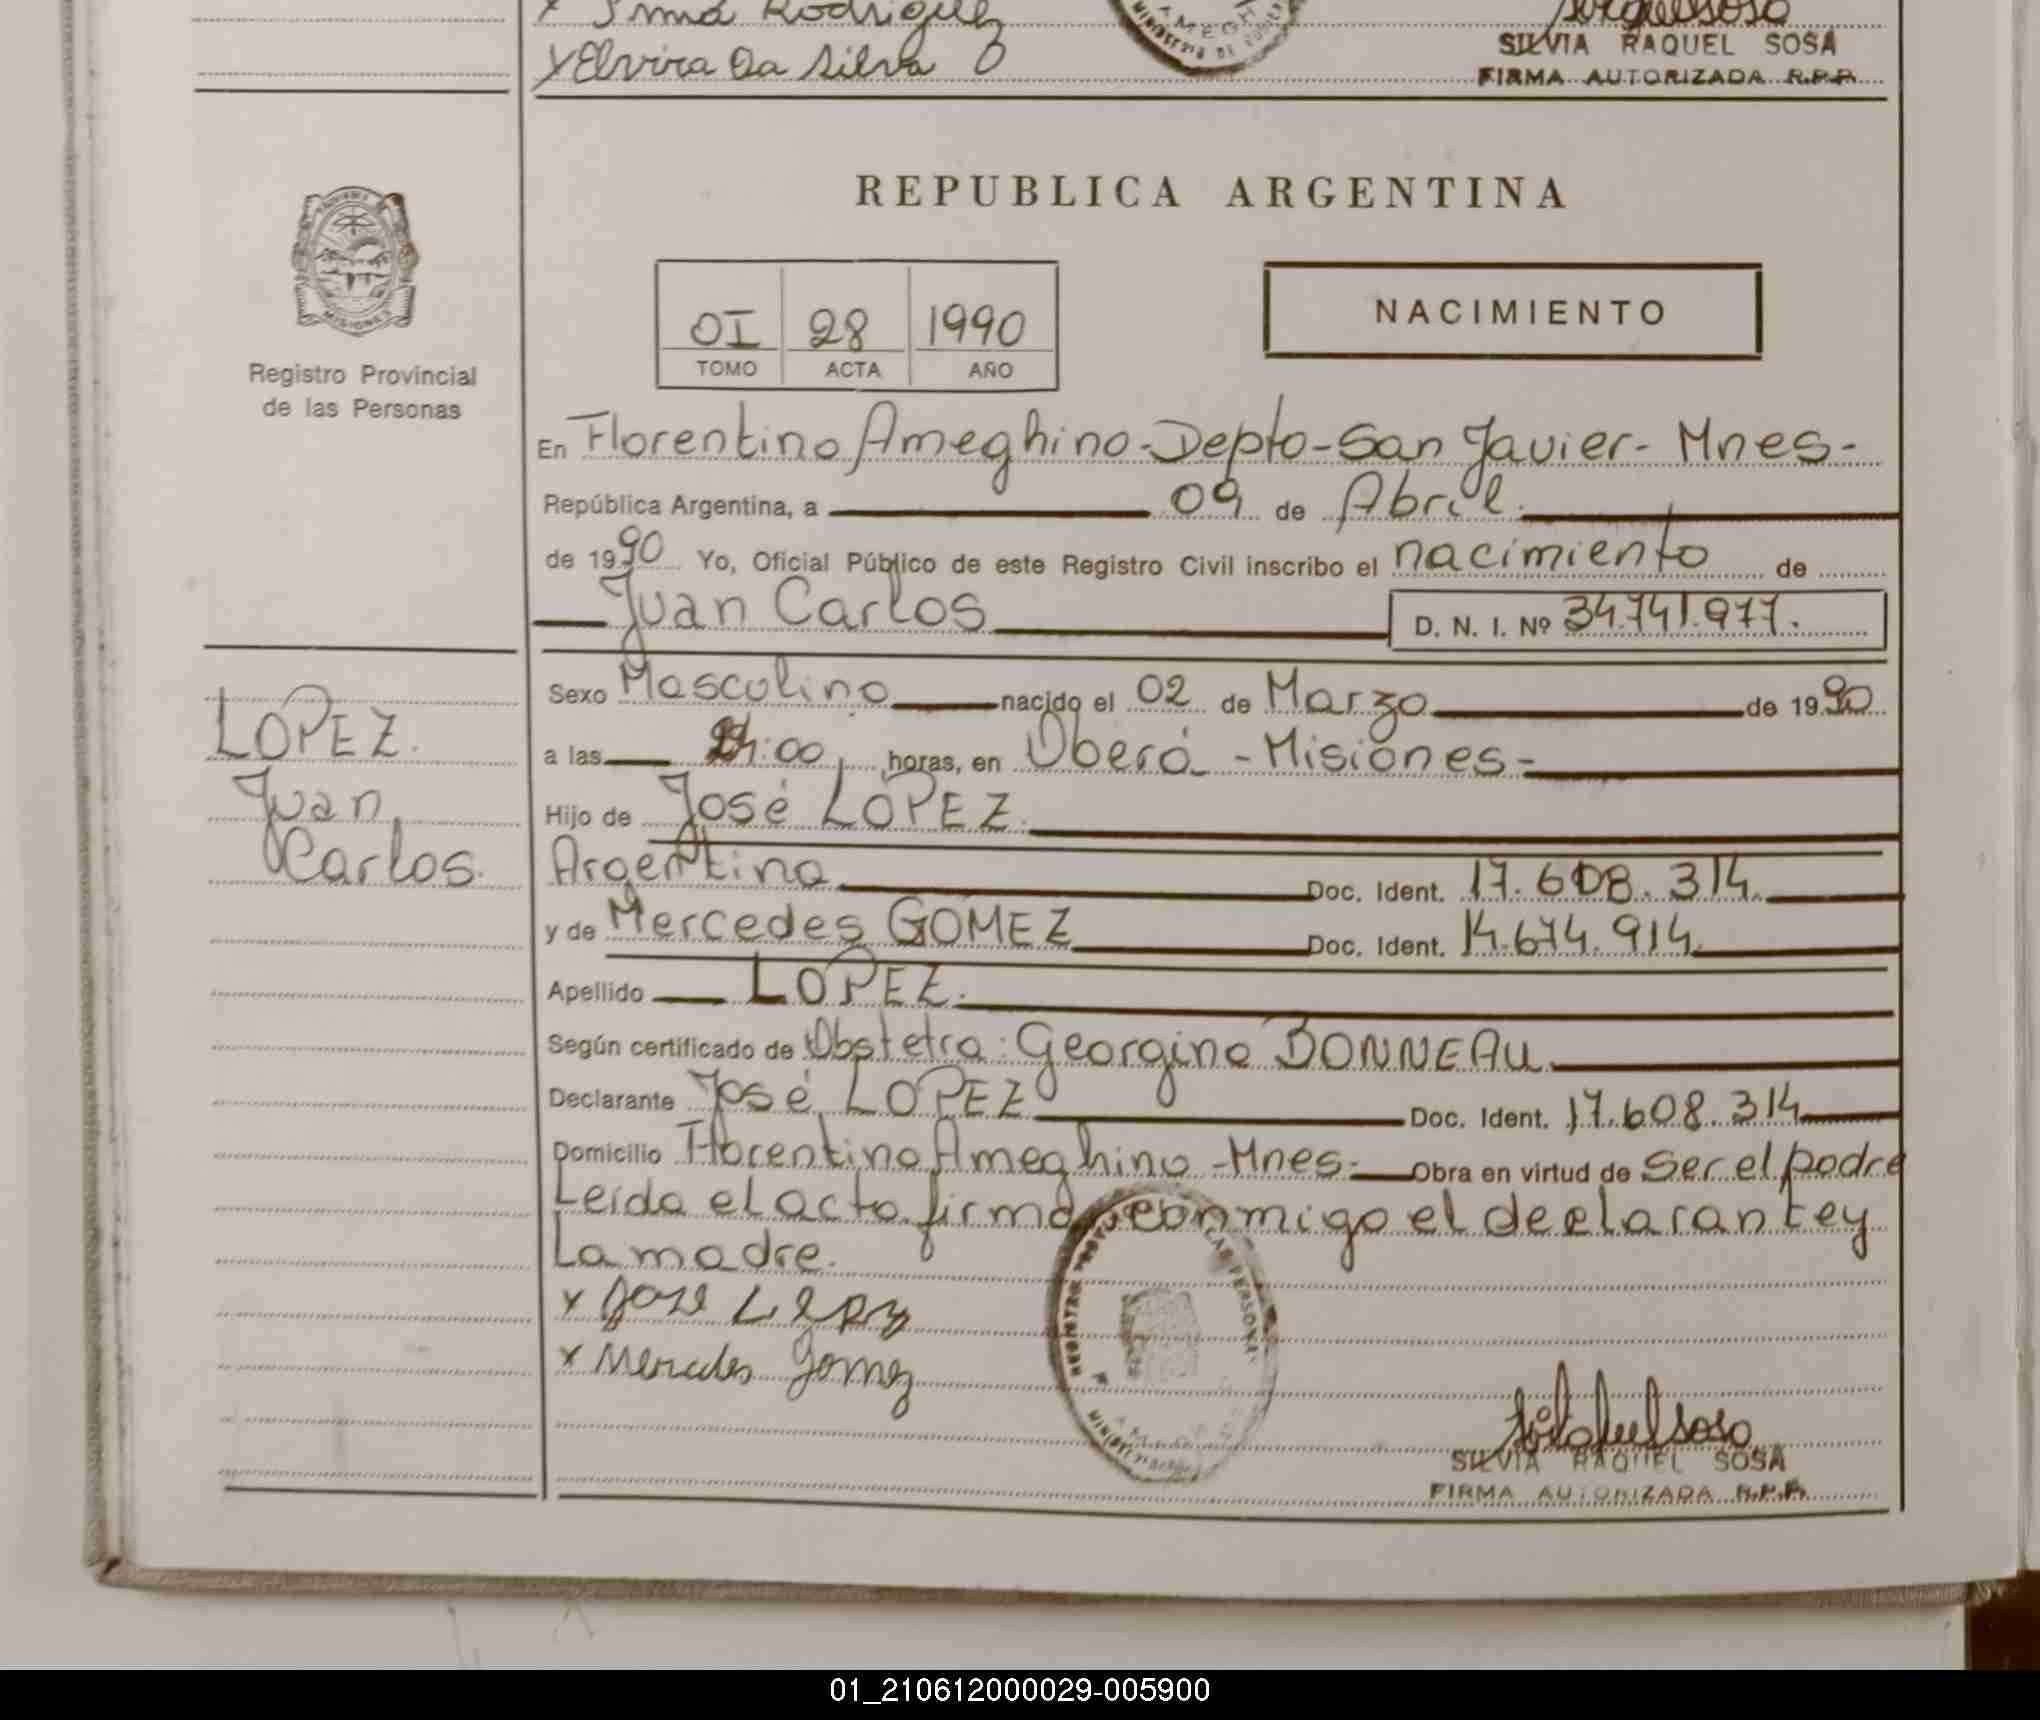 x Irma Rodriguez
x Elvira Da Silva
SILVIA RAQUEL SOSA
FIRMA AUTORIZADA R.P.P.
MISIONES
Registro Provincial
de las Personas
REPUBLICA ARGENTINA
OI 28 1990
TOMO ACTA AÑO
NACIMIENTO
En Florentino Ameghino-Depto-San Javier-Mnes-
República Argentina, a 09 de Abril.
de 1990 Yo, Oficial Público de este Registro Civil inscribo el nacimiento de
Juan Carlos D. N. I. Nº 34.741.977.
Sexo Masculino nacido el 02 de Marzo de 1990
a las :00 horas, en Oberá - Misiones-
Hijo de José LOPEZ.
Argentino Doc. Ident. 17.608.314.
y de Mercedes GOMEZ Doc. Ident. 14.674.914.
Apellido LOPEZ.
Según certificado de Obstetra: Georgina BONNEAU.
Declarante José LOPEZ Doc. Ident. 17.608.314
Domicilio Florentino Ameghino-Mnes- Obra en virtud de Ser el padre
Leida el acta firman conmigo el declarante y
La madre.
LOPEZ.
Juan
Carlos.
x Jose Lopez
x Mercedes Gomez
SILVIA RAQUEL SOSA
FIRMA AUTORIZADA R.P.P.
01_210612000029-005900